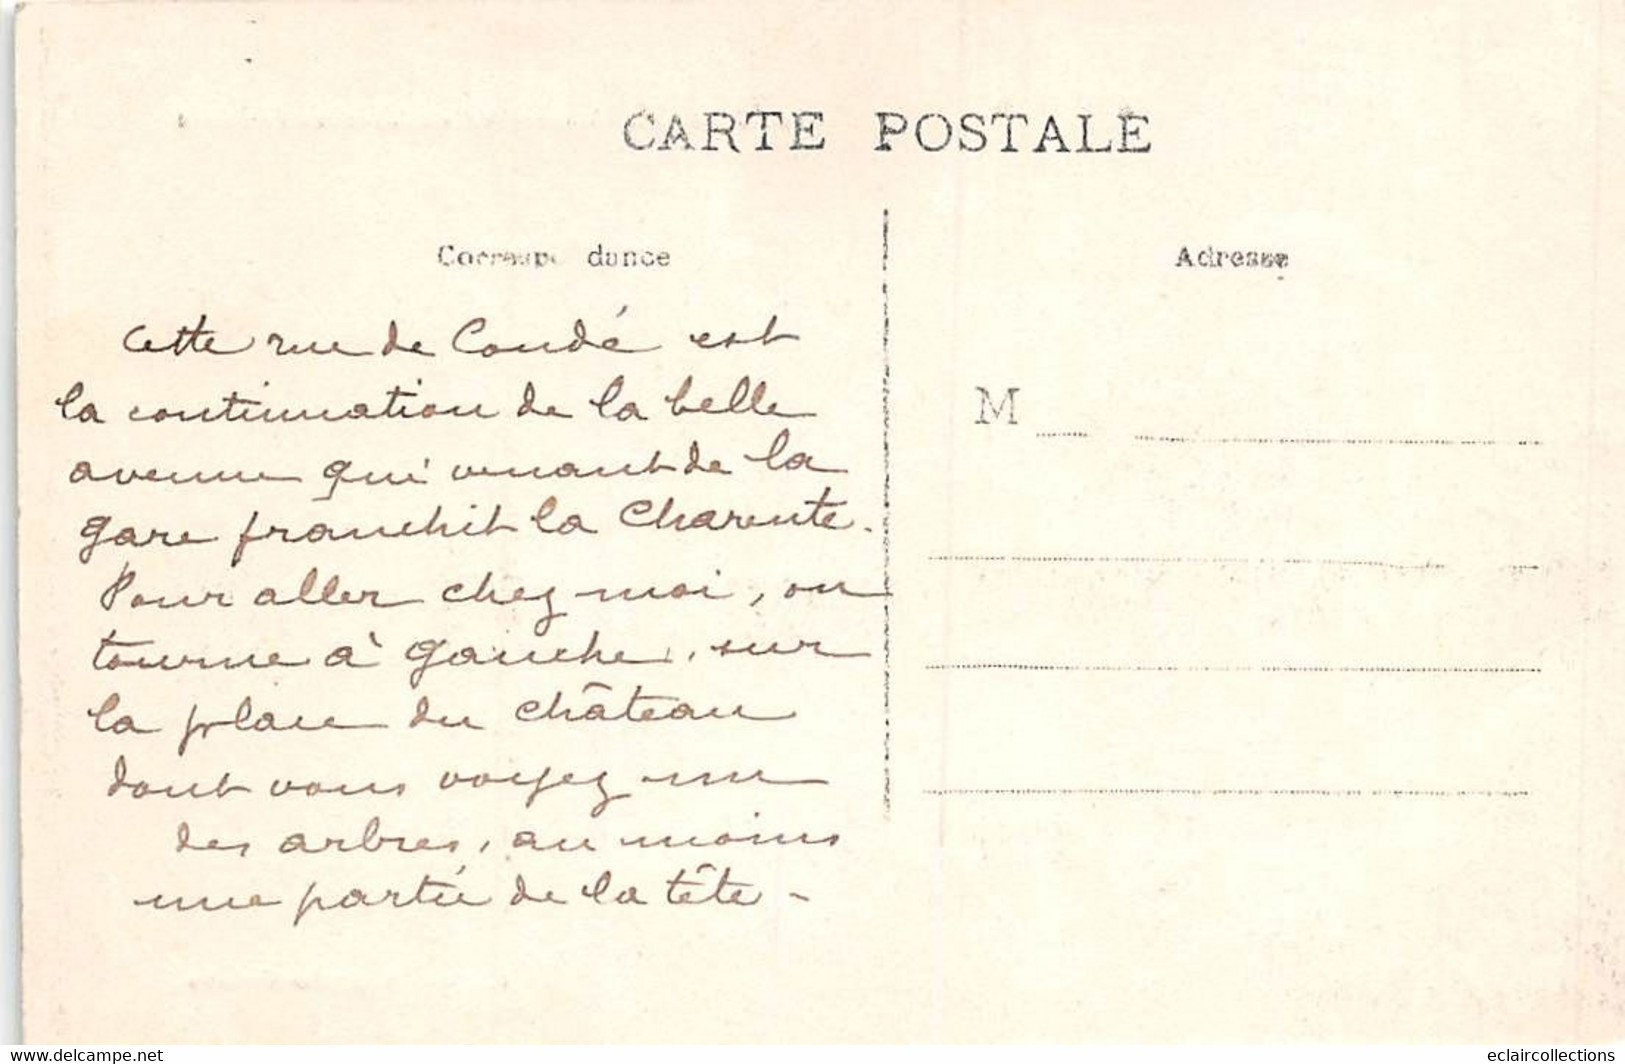 CARTE POSTALE
Correspondance
Adresse
Cette rue de Condé est
la continuation de la belle
avenue qui venant de la
gare franchit la Charente.
Pour aller chez moi, on
tourne à gauche, sur
la place du château
dont vous voyez un
des arbres, au moins
une partie de la tête -
M
www.delcampe.net
eclaircollections